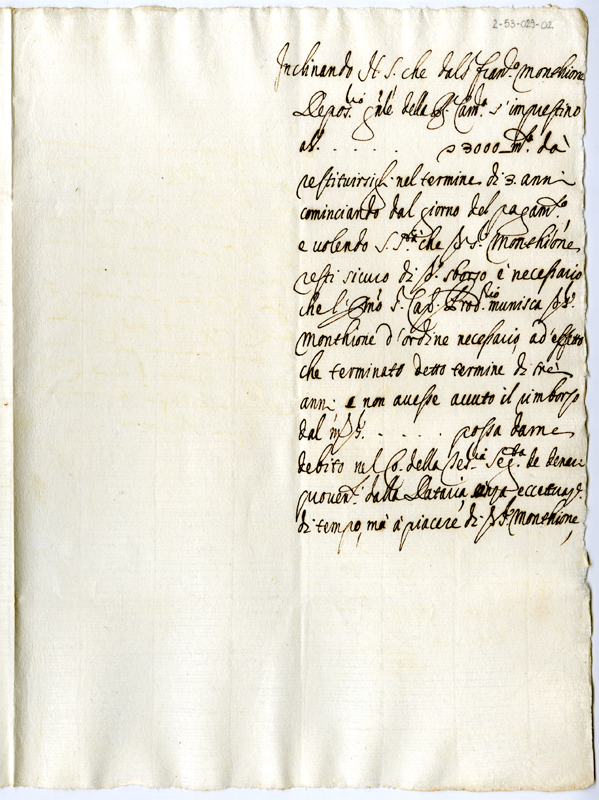 2-53-029-02
Inclinando N. S. che dal S. Fran.co Monthione
Depos.rio g'nle della R. Cam.a s'imprestino
al S. . . . . . 3000 m.ta da
restituirsigli nel termine di 3. anni
cominciando dal giorno del pagam.to
e volendo S. S.tà che d.o S.r Monthione
resti sicuro di d.o sborso è necessario
che l' S. Card. Prod.rio munisca d.o S.r
Monthione d'ordine necessario, ad effetto
che terminato detto termine di trè
anni e non avesse avuto il rimborso
dal S.r . . . . . possa darne
debito nel C. della Seg.ta de denari
provent.i dalla Dataria, senza
di tempo, mà à piacere di d.o S.r Monthione,